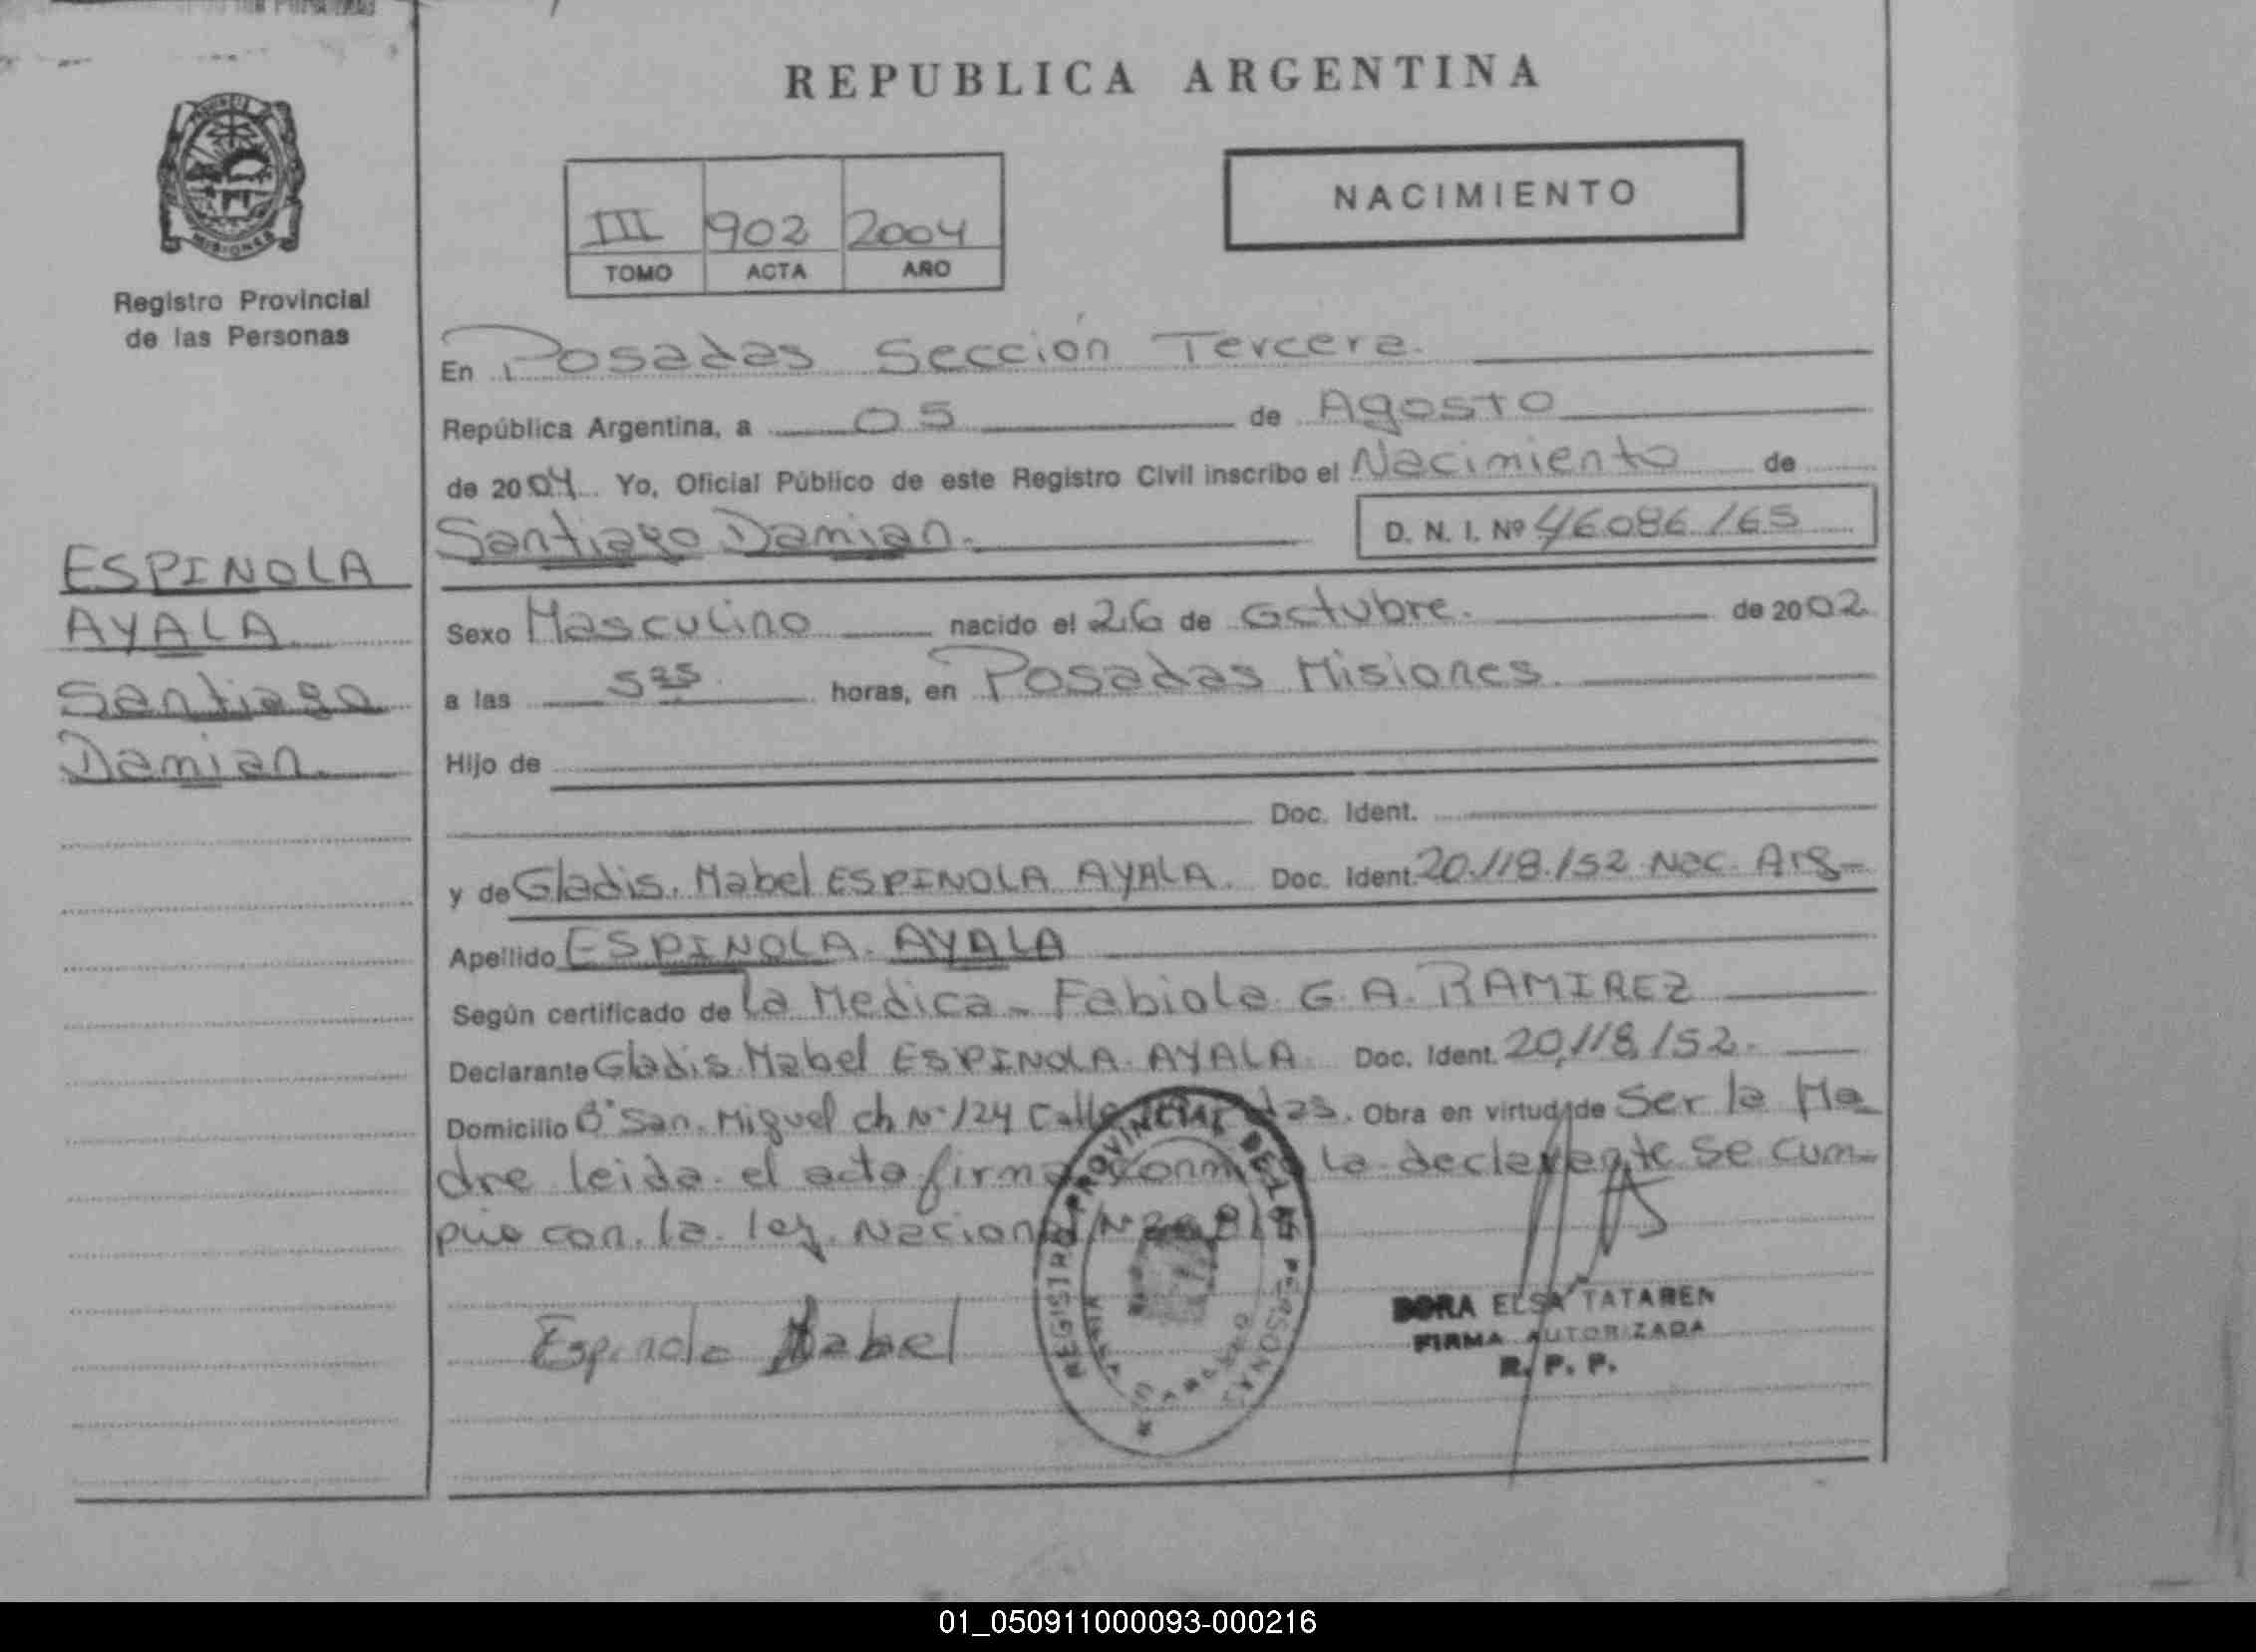 REPUBLICA ARGENTINA
PROVINCIA DE
MISIONES
Registro Provincial
de las Personas
NACIMIENTO
III 902 2004
TOMO ACTA AÑO
ESPINOLA
AYALA
Santiago
Damian.
En Posadas Sección Tercera.
República Argentina, a 05 de Agosto
de 2004 Yo, Oficial Público de este Registro Civil inscribo el Nacimiento de
Santiago Damian. D. N. I. Nº 46086165
Sexo Masculino nacido el 26 de Octubre. de 2002
a las 5 25 horas, en Posadas Misiones.
Hijo de
Doc. Ident.
y de Gladis Mabel ESPINOLA AYALA. Doc. Ident. 20.118.152 Nac. Arg-
Apellido ESPINOLA AYALA
Según certificado de la Medica - Fabiola G. A. RAMIREZ
Declarante Gladis Mabel ESPINOLA AYALA. Doc. Ident. 20.118.152.
Domicilio Bº San Miguel ch Nº 124 Calle Obra en virtud de Ser la Ma
dre leida el acta firma la declarante se cum-
plio con la ley Nacional Nº
Espinola Mabel
REGISTRO PROVINCIAL DE LAS PERSONAS
DORA ELSA TATAREN
FIRMA AUTORIZADA
R. P. P.
01_050911000093-000216